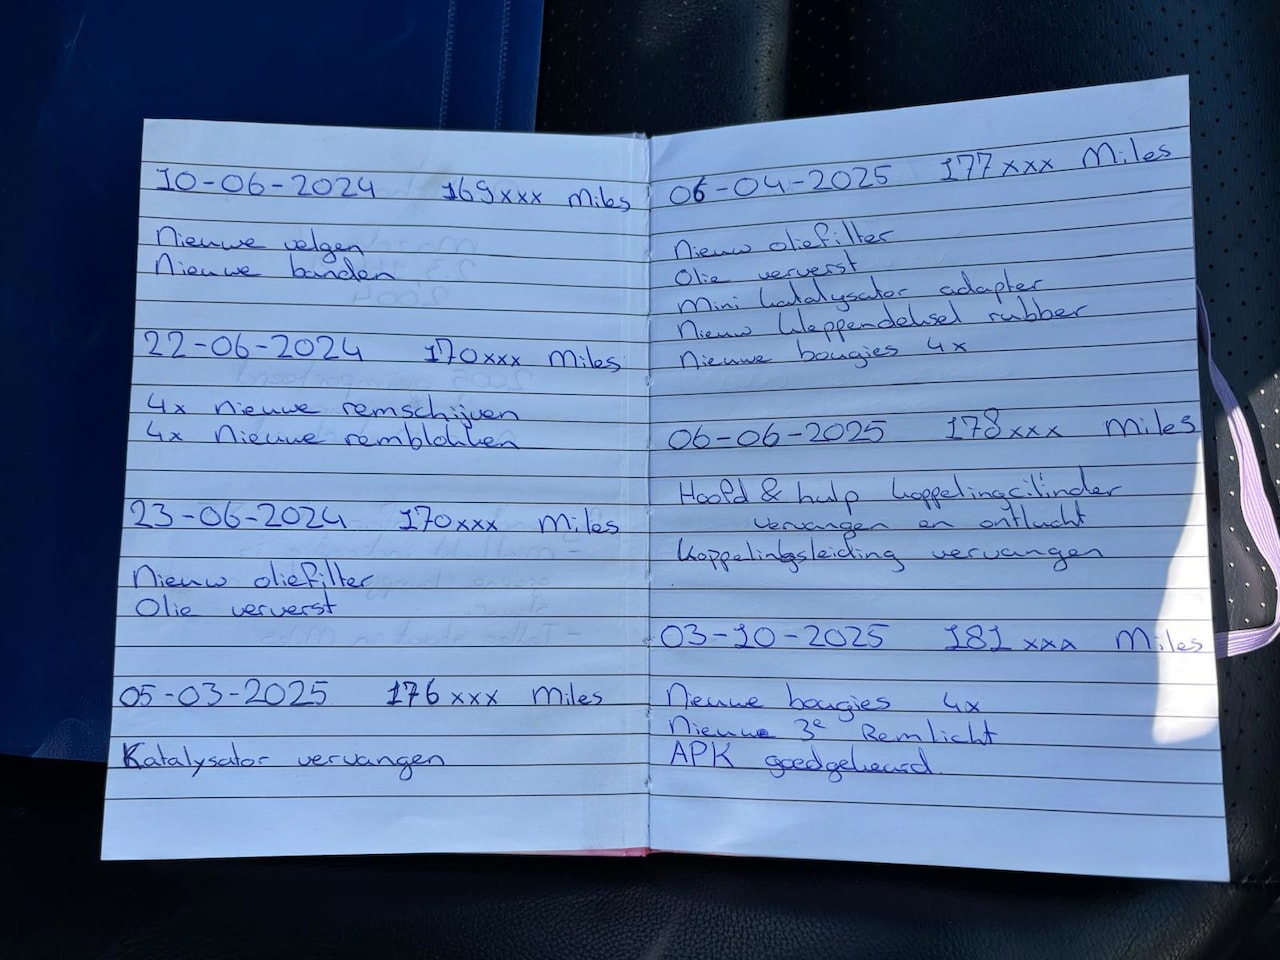 10-06-2024 169xxx Miles
Nieuwe velgen
Nieuwe banden
22-06-2024 170xxx Miles
4x nieuwe remschijven
4x nieuwe remblokken
23-06-2024 170xxx Miles
Nieuw oliefilter
Olie ververst
05-03-2025 176xxx Miles
Katalysator vervangen
06-04-2025 177xxx Miles
Nieuw oliefilter
Olie ververst
Mini katalysator adapter
Nieuw kleppendeksel rubber
Nieuwe bougies 4x
06-06-2025 178xxx Miles
Hoofd & hulp koppelingcilinder
vervangen en ontlucht
koppelingsleiding vervangen
03-10-2025 181xxx Miles
Nieuwe bougies 4x
Nieuwe 3e Remlicht
APK goedgekeurd